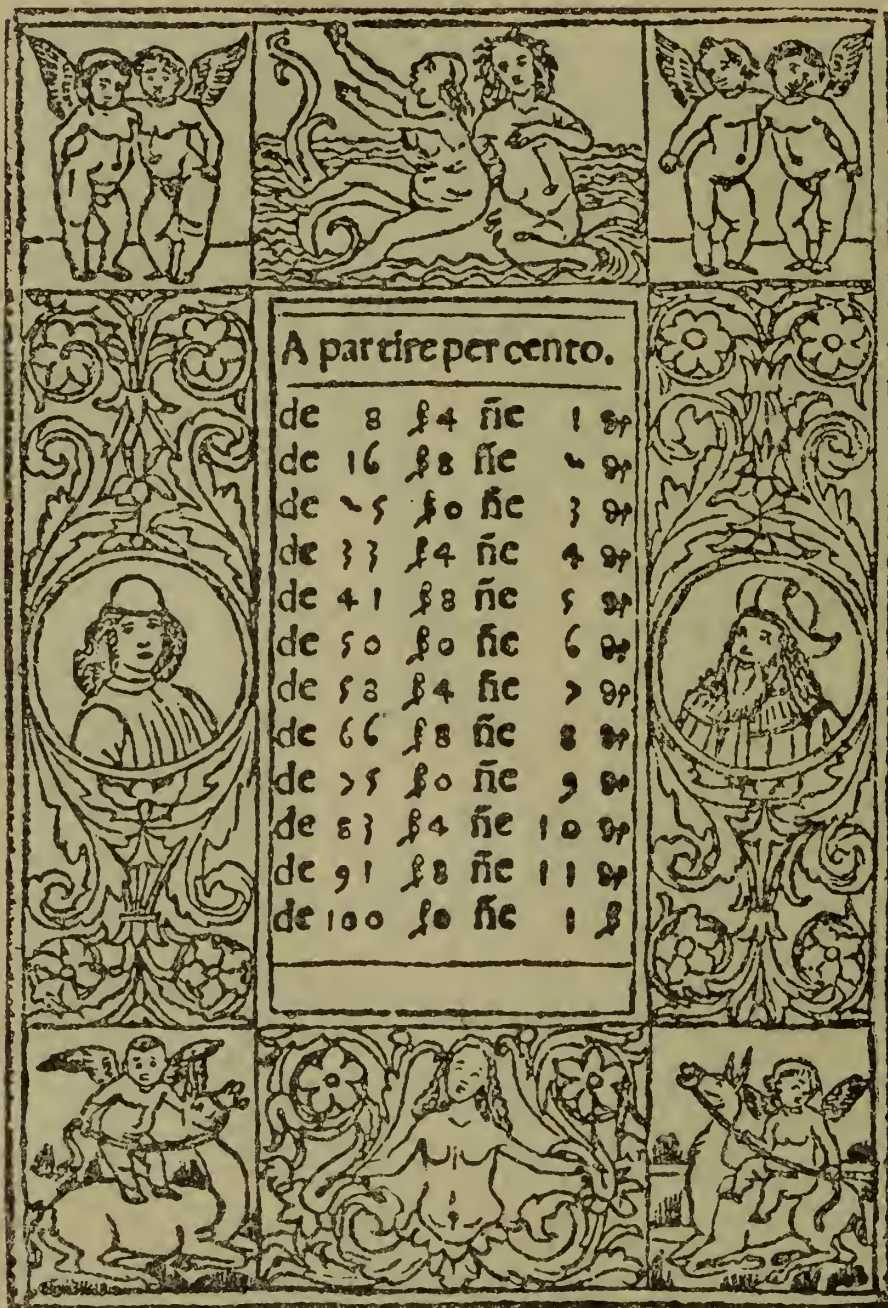 A partire per cento.
de 8 ß 4 ñe 1 ₰
de 16 ß 8 ñe 2 ₰
de 25 ß 0 ñe 3 ₰
de 33 ß 4 ñe 4 ₰
de 41 ß 8 ñe 5 ₰
de 50 ß 0 ñe 6 ₰
de 58 ß 4 ñe 7 ₰
de 66 ß 8 ñe 8 ₰
de 75 ß 0 ñe 9 ₰
de 83 ß 4 ñe 10 ₰
de 91 ß 8 ñe 11 ₰
de 100 ß 0 ñe 1 ß